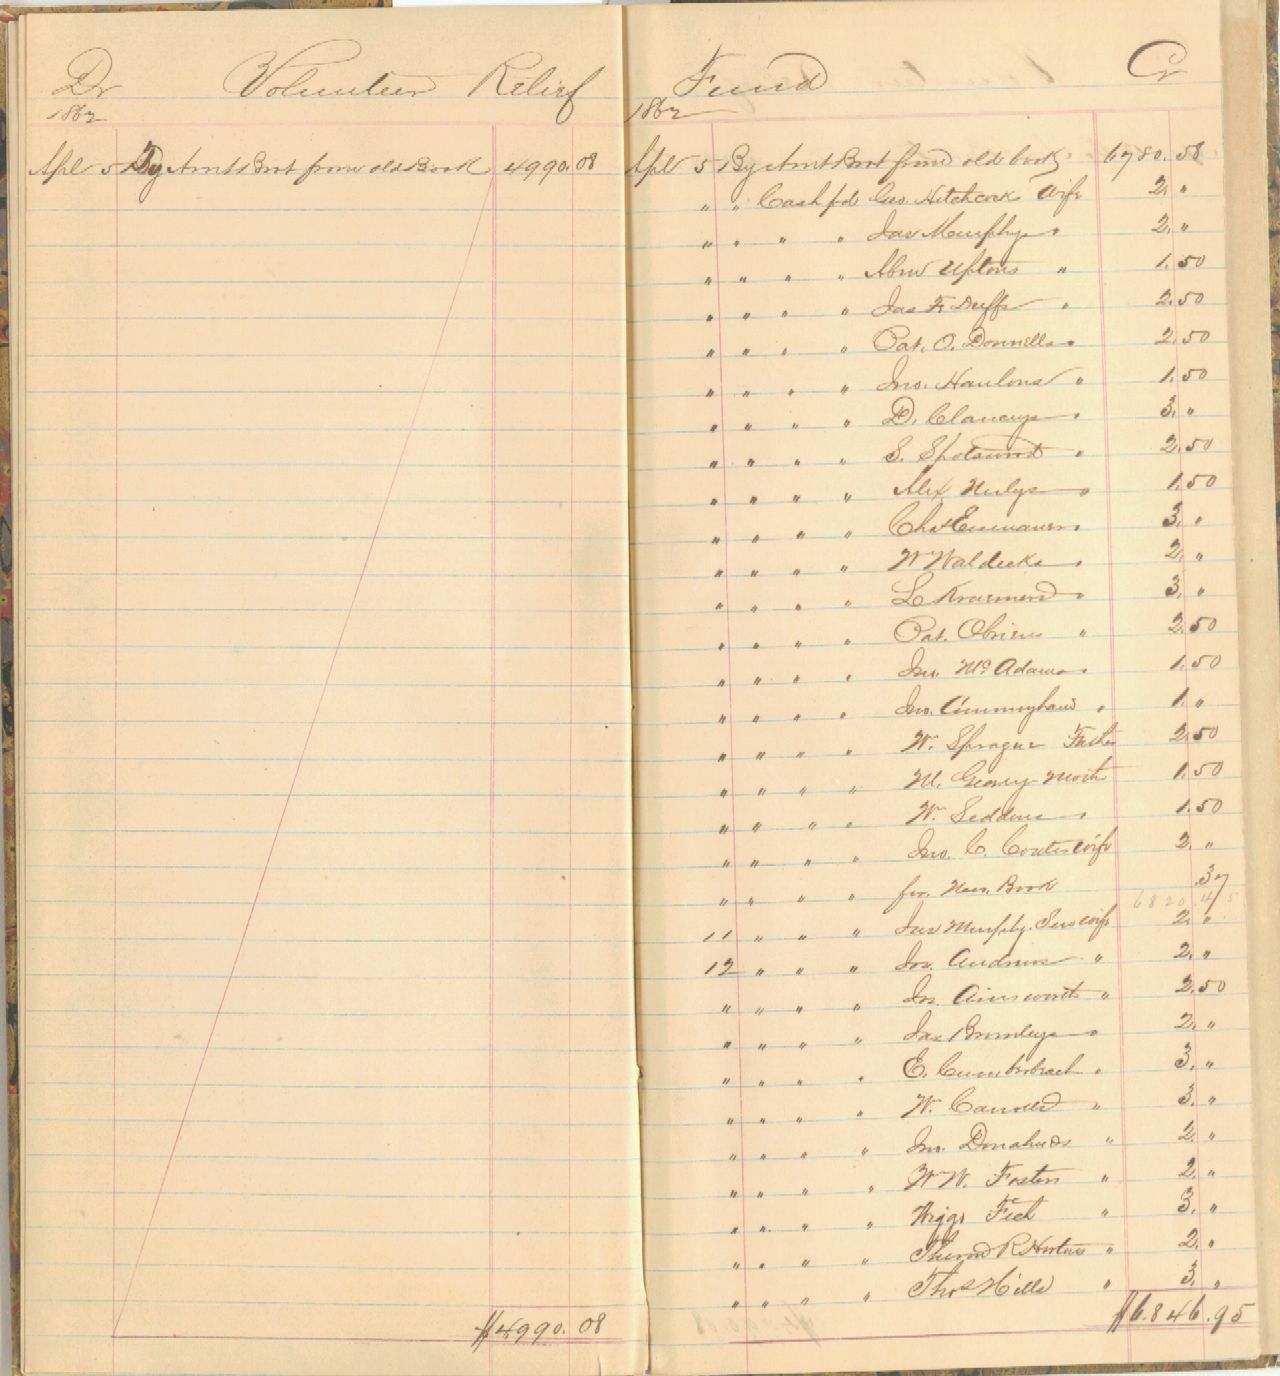 Dr Volunteer Relief
1862
Apl 5 To Amt Brot from old Book 4990.08
$4990.08
Fund Cr
1862
Apl 5 By Amt Brot from old book 6780.58
" " Cash pd Geo. Hitchcocks Wife 2. "
" " " " Jas Murphys " 2. "
" " " " Abm Uptons " 1.50
" " " " Jas F. Duffs " 2.50
" " " " Pat. O. Donnells " 2.50
" " " " Jno. Hanlons " 1.50
" " " " D. Clancys " 3. "
" " " " S. Spotswood " 2.50
" " " " Alex Neelys " 1.50
" " " " Chas Eisenauers " 3. "
" " " " W Waldecks " 2. "
" " " " L Kraemers " 3. "
" " " " Pat. Obriens " 2.50
" " " " Jno. McAdams " 1.50
" " " " Jno. Cunningham " 1. "
" " " " W. Sprague Father 2.50
" " " " M. Geary Moth 1.50
" " " " W. Seddons " 1.50
" " " " Jno. C. Coates wife 2. "
" " " " for New Book .37
6820.45
11 " " " Jas Murphy Sen wife 2. "
12 " " " Jos. Andrews " 2. "
" " " " Jos. Ainsworth " 2.50
" " " " Jas Bromleys " 2. "
" " " " E. Cumberbach " 3. "
" " " " W. Carrolls " 3. "
" " " " Jno. Donahues " 2. "
" " " " W W. Fosters " 2. "
" " " " Wiggs Fich " 3. "
" " " " R Hortons " 2. "
" " " " Thos Hills " 3. "
$6.846.95